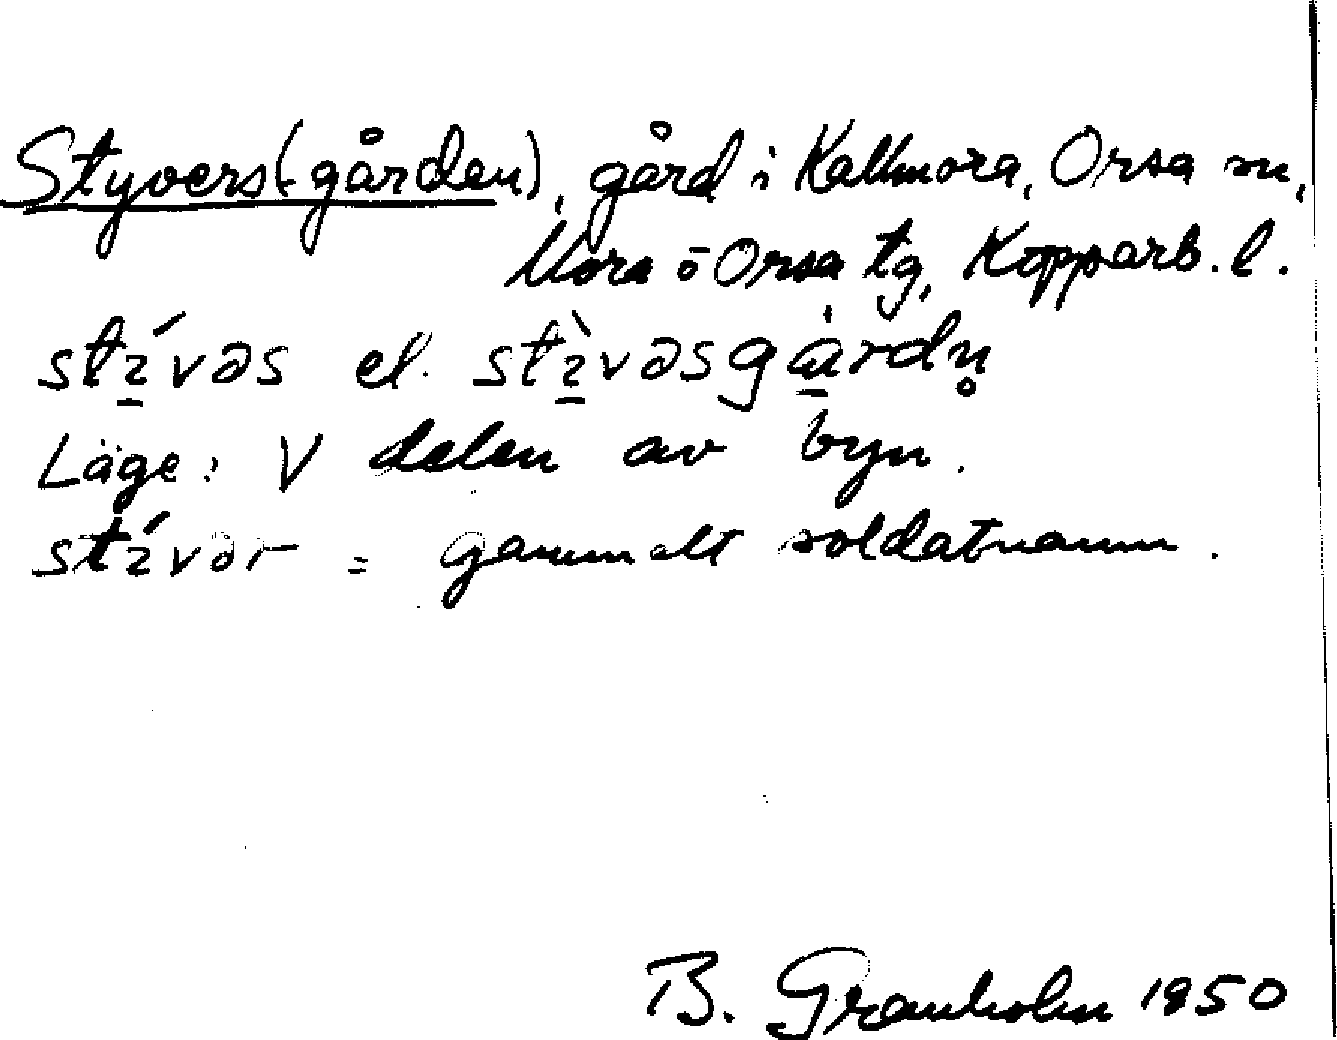 Styvers(-gården), gård i Kallmora, Orsa sn,
Mora o Orsa tg, Kopparb. l.
stí̱vəs el. stì̱vəsgà̱rdn̥
Läge: V delen av byn.
stívər = gammalt soldatnamn.
B. Granholm 1950